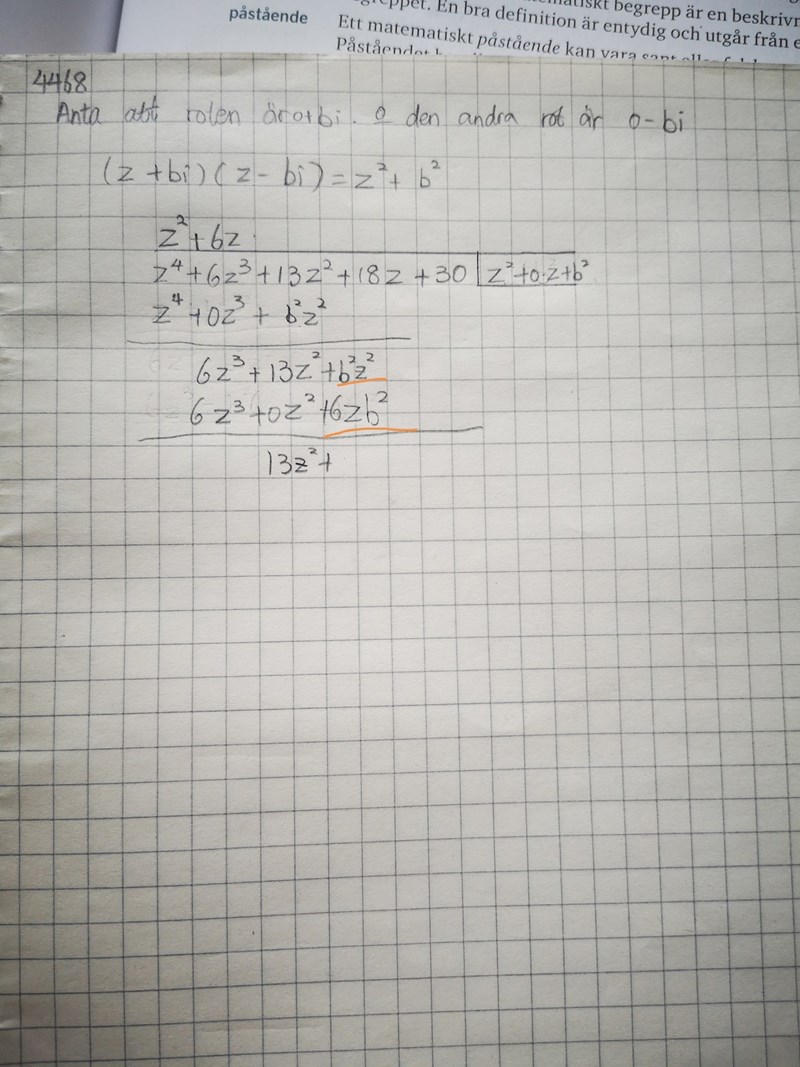 påstående
begrepp är en beskrivn
En bra definition är entydig och utgår från e
Ett matematiskt påstående kan vara sant eller
4468
Anta att roten är 0+bi. o den andra rot är 0-bi
(z+bi)(z-bi)=z²+b²
z²+6z
z⁴+6z³+13z²+18z+30 z²+0·z+b²
z⁴+0z³+b²z²
6z³+13z²+b²z²
6z³+0z²+6zb²
13z²+